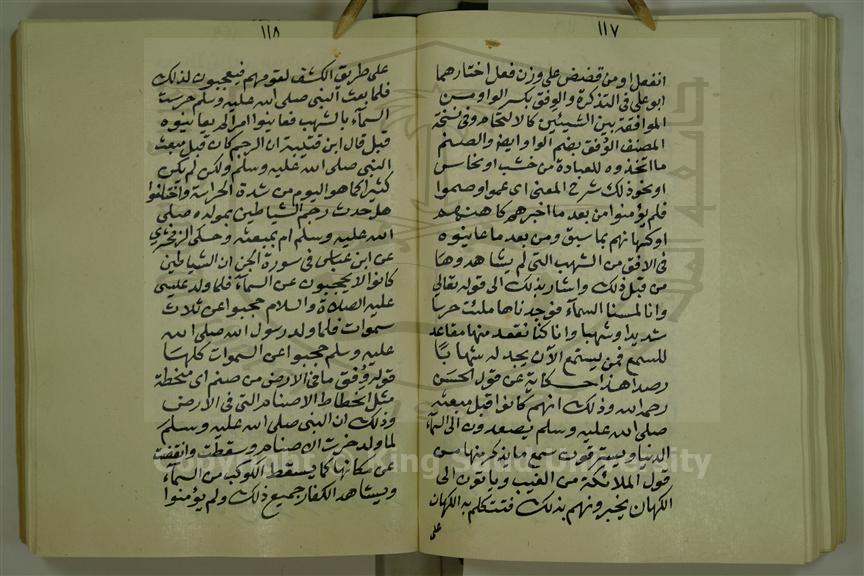 ١١٧
انفعل او من قضض على وزن فعل اختارهما
ابو على فى التذكرة والوفق بكسر الواو مـن
الموافقة بين الشيئين كالالتحام وفى نسخة
المصنف الوُفق بضم الواو ايضا والصنم
ما اتخذوه للعبادة من خشب او نحاس
او نحو ذلك شرح المعنى اى عموا وصموا
فلم يؤمنوا من بعد ما اخبرهم كاهنهم
او كهانهم بما سبق ومن بعد ما عاينوه
فى الافق من الشهب التى لم يشاهدوها
من قبل ذلك واشار بذلك الى قوله تعالى
وانا لمسنا السمآء فوجدناها ملئت حرسا
شديدا وشهبا وانا كنا نقعد منها مقاعد
للسمع فمن يستمع الآن يجد له شهابًا
رصدا هذا حكاية عن قول الحسن
رحمه الله وذلك انهم كانوا قبل مبعثه
صلى الله عليه وسلم يصعدون الى السمآء
الدنيا ويسترقون سمع ما يذكر منها من
قول الملائكة من الغيب وياتون الى
الكهان يخبرونهم بذلك فتتكلم به الكهان
على
١١٨
على طريق الكشف لقومهم فيعجبون لذلك
فلما بعث النبى صلى الله عليه وسلم حرست
السمآء بالشهب فعاينوا امرا لم يعاينوه
قبل قال ابن قتيبة ان الرجم كان قبل مبعث
النبى صلى الله عليه وسلم ولكن لم يكن
كثيرا كما هو اليوم من شدة الحراسة واختلفوا
هل حدث رجم الشياطين بمولده صلى
الله عليه وسلم ام بمبعثه وحكى الزمخشرى
عن ابن عباس فى سورة الجن ان الشياطين
كانوا لا يحجبون عن السمآء فلما ولد عيسى
عليه الصلاة والسلام حجبوا عن ثلاث
سموات فلما ولد رسول الله صلى الله
عليه وسلم حجبوا عن السموات كلها
قوله وُفق ما فى الارض من صنم اى منحطة
مثل انحطاط الاصنام التى فى الارض
وذلك ان النبى صلى الله عليه وسلم
لما ولد خرت الاصنام وسقطت وانقضت
عن مكانها كما يسقط الكوكب من السمآء
ويشاهد الكفار جميع ذلك ولم يؤمنوا
Copyright © King Saud University